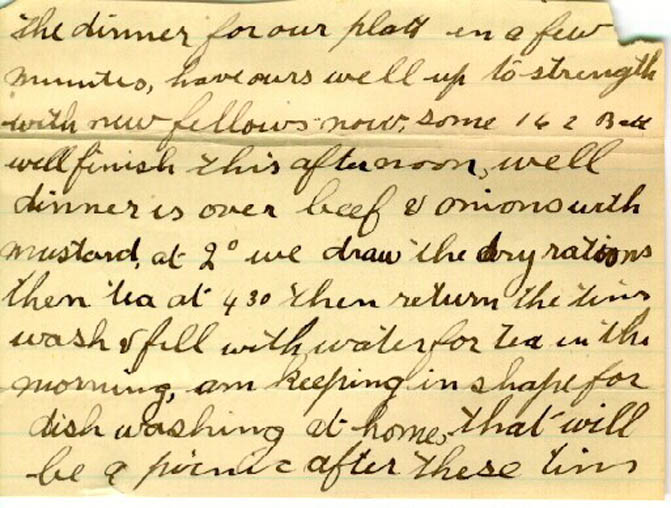 the dinner for our platt in a few
minutes, have ours well up to strength
with new fellows now, some 162 Batt
well finish this afternoon, well
dinner is over beef & onions with
mustard, at 2° we draw the dry rations
then tea at 4 30 then return the tins
wash & fill with water for tea in the
morning, am keeping in shape for
dish washing at home, that will
be a picnic after these tins